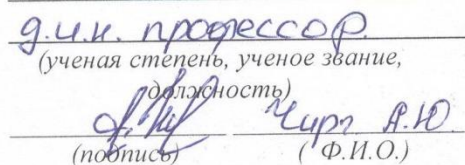 д.и.н. профессор.
(ученая степень, ученое звание,
должность)
Чирг А.Ю
(подпись) ( Ф.И.О.)